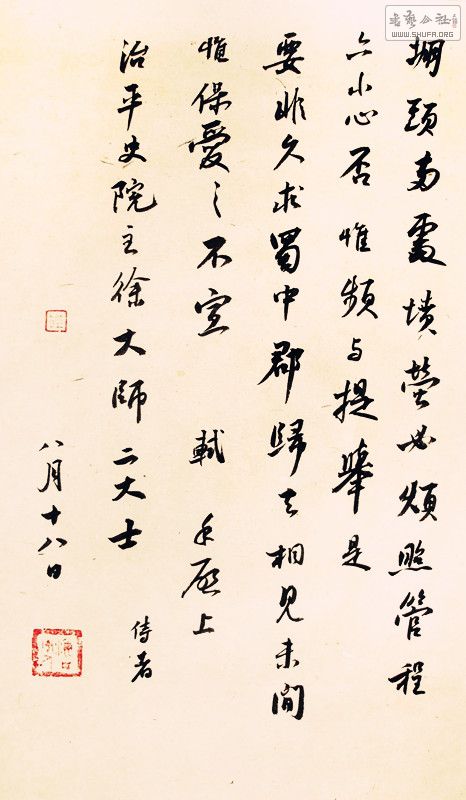 堋頭两處墳塋必煩照管程
六小心否惟頻与提舉是
要非久求蜀中郡歸去相見未間
惟保愛之不宣 軾手啟上
治平史院主徐大師二大士 侍者
八月十八日
WWW.SHUFA.ORG